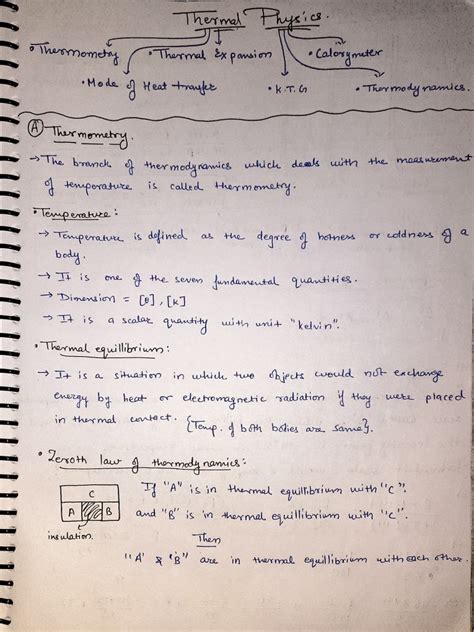 Thermal Physics.
• Thermometry • Thermal Expansion • Calorymeter
• Mode of Heat tranfer • K.T.G • Thermodynamics.
(A) Thermometry.
→ The branch of thermodynamics which deals with the measurement
of temperature is called thermometry.
• Temperature:
→ Temperature is defined as the degree of hotness or coldness of a
body.
→ It is one of the seven fundamental quantities.
→ Dimension = [θ], [K]
→ It is a scalar quantity with unit "kelvin".
• Thermal equilibrium:
→ It is a situation in which two objects would not exchange
energy by heat or electromagnetic radiation if they were placed
in thermal contact. {Temp. of both bodies are same}.
• Zeroth law of thermodynamics:
If "A" is in thermal equilibrium with "C".
C
A B
and "B" is in thermal equilibrium with "C".
insulation.
Then
"A" & "B" are in thermal equilibrium with each other.